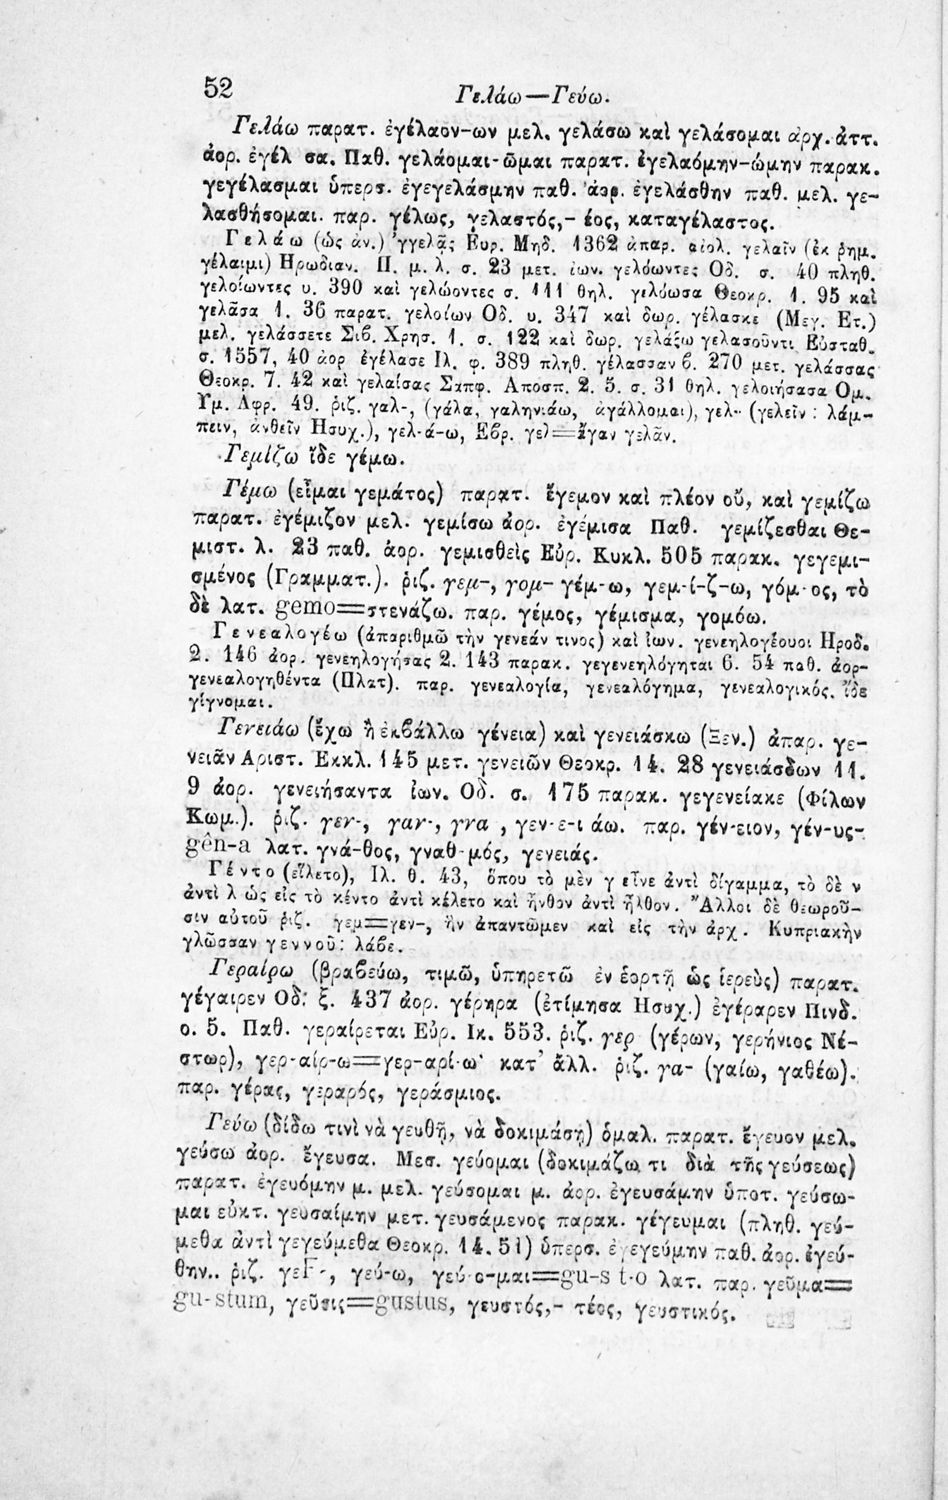 52
Γελάω—Γεύω.
Γελάω παρατ. ἐγέλαον-ων μελ. γελάσω καὶ γελάσομαι ἀρχ. ἀττ.
ἀορ. ἐγέλ σα. Παθ. γελάομαι-ῶμαι παρατ. ἐγελαόμην-ώμην παρακ.
γεγέλασμαι ὑπερσ. ἐγεγελάσμην παθ. ἀορ. ἐγελάσθην παθ. μελ. γε-
λασθήσομαι. παρ. γέλως, γελαστός,- έος, καταγέλαστος.
Γελάω (ὡς ἀν.) 'γγελᾷς Εὐρ. Μηδ. 1362 ἀπαρ. αἰολ. γελαῖν (ἐκ ῥημ.
γέλαιμι) Ἡρωδιαν. Π. μ. λ. σ. 23 μετ. ἰων. γελόωντες Ὀδ. σ. 40 πληθ.
γελοίωντες υ. 390 καὶ γελώοντες σ. 111 θηλ. γελόωσα Θεοκρ. 1. 95 καὶ
γελᾶσα 1. 36 παρατ. γελοίων Ὀδ. υ. 347 καὶ δωρ. γέλασκε (Μεγ. Ετ.)
μελ. γελάσσετε Σιβ. Χρησ. 1. σ. 122 καὶ δωρ. γελάξω γελασοῦντι Εὐσταθ.
σ. 1557, 40 ἀορ ἐγέλασε Ιλ. φ. 389 πληθ. γέλασσαν ϐ. 270 μετ. γελάσσας
Θεοκρ. 7. 42 καὶ γελαίσας Σαπφ. Αποσπ. 2. 5. σ. 31 θηλ. γελοιήσασα Ομ.
Υμ. Αφρ. 49. ῥιζ. γαλ-, (γάλα, γαληνιάω, ἀγάλλομαι), γελ- (γελεῖν : λάμ-
πειν, ἀνθεῖν Ησυχ.), γελ-ά-ω, Εϐρ. γελ=ἄγαν γελᾶν.
Γεμίζω ἴδε γέμω.
Γέμω (εἶμαι γεμάτος) παρατ. ἔγεμον καὶ πλέον οὔ, καὶ γεμίζω
παρατ. ἐγέμιζον μελ. γεμίσω ἀορ. ἐγέμισα Παθ. γεμίζεσθαι Θε-
μιστ. λ. 23 παθ. ἀορ. γεμισθεὶς Εὐρ. Κυκλ. 505 παρακ. γεγεμι-
σμένος (Γραμματ.). ῥιζ. γεμ-, γομ- γέμ-ω, γεμ-ί-ζ-ω, γόμ-ος, τὸ
δὲ λατ. gemo=στενάζω. παρ. γέμος, γέμισμα, γομόω.
Γενεαλογέω (ἀπαριθμῶ τὴν γενεάν τινος) καὶ ἰων. γενεηλογέουσι Ἡροδ.
2. 146 ἀορ. γενεηλογήσας 2. 143 παρακ. γεγενεηλόγηται 6. 54 παθ. ἀορ-
γενεαλογηθέντα (Πλατ). παρ. γενεαλογία, γενεαλόγημα, γενεαλογικός. ἴδε
γίγνομαι.
Γενειάω (ἔχω ἢ ἐκϐάλλω γένεια) καὶ γενειάσκω (Ξεν.) ἀπαρ. γε-
νειᾶν Αριστ. Ἐκκλ. 145 μετ. γενειῶν Θεοκρ. 14. 28 γενειάσδων 11.
9 ἀορ. γενειήσαντα ἰων. Οδ. σ. 175 παρακ. γεγενείακε (Φίλων
Κωμ.). ῥιζ. γεν-, γαν-, γνα , γεν-ε-ι άω. παρ. γέν-ειον, γέν-υς-
gên-a λατ. γνά-θος, γναθ-μός, γενειάς.
Γέντο (εἵλετο), Ιλ. θ. 43, ὅπου τὸ μὲν γ εἶνε ἀντὶ δίγαμμα, τὸ δὲ ν
ἀντὶ λ ὡς εἰς τὸ κέντο ἀντὶ κέλετο καὶ ἦνθον ἀντὶ ἦλθον. Ἄλλοι δὲ θεωροῦ-
σιν αὐτοῦ ῥιζ. γεμ=γεν-, ἣν ἀπαντῶμεν καὶ εἰς τὴν ἀρχ. Κυπριακὴν
γλῶσσαν γεννοῦ: λάϐε.
Γεραίρω (βραϐεύω, τιμῶ, ὑπηρετῶ ἐν ἑορτῇ ὡς ἱερεὺς) παρατ.
γέγαιρεν Οδ: ξ. 437 ἀορ. γέρηρα (ἐτίμησα Ησυχ.) ἐγέραρεν Πινδ.
ο. 5. Παθ. γεραίρεται Εὐρ. Ικ. 553. ῥιζ. γερ (γέρων, γερήνιος Νέ-
στωρ), γερ-αίρ-ω=γερ-αρί-ω· κατ' ἄλλ. ῥιζ. γα- (γαίω, γαθέω).
παρ. γέρας, γεραρός, γεράσμιος.
Γεύω (δίδω τινὶ νὰ γευθῇ, νὰ δοκιμάσῃ) ὁμαλ. παρατ. ἔγευον μελ.
γεύσω ἀορ. ἔγευσα. Μεσ. γεύομαι (δοκιμάζω τι διὰ τῆς γεύσεως)
παρατ. ἐγευόμην μ. μελ. γεύσομαι μ. ἀορ. ἐγευσάμην ὑποτ. γεύσω-
μαι εὐκτ. γευσαίμην μετ. γευσάμενος παρακ. γέγευμαι (πληθ. γεύ-
μεθα ἀντὶ γεγεύμεθα Θεοκρ. 14. 51) ὑπερσ. ἐγεγεύμην παθ. ἀορ. ἐγεύ-
θην.. ῥιζ. γεF-, γεύ-ω, γεύ-ο-μαι=gu-s t-o λατ. παρ. γεῦμα=
gu-stum, γεῦσις=gustus, γευστός,- τέος, γευστικός.